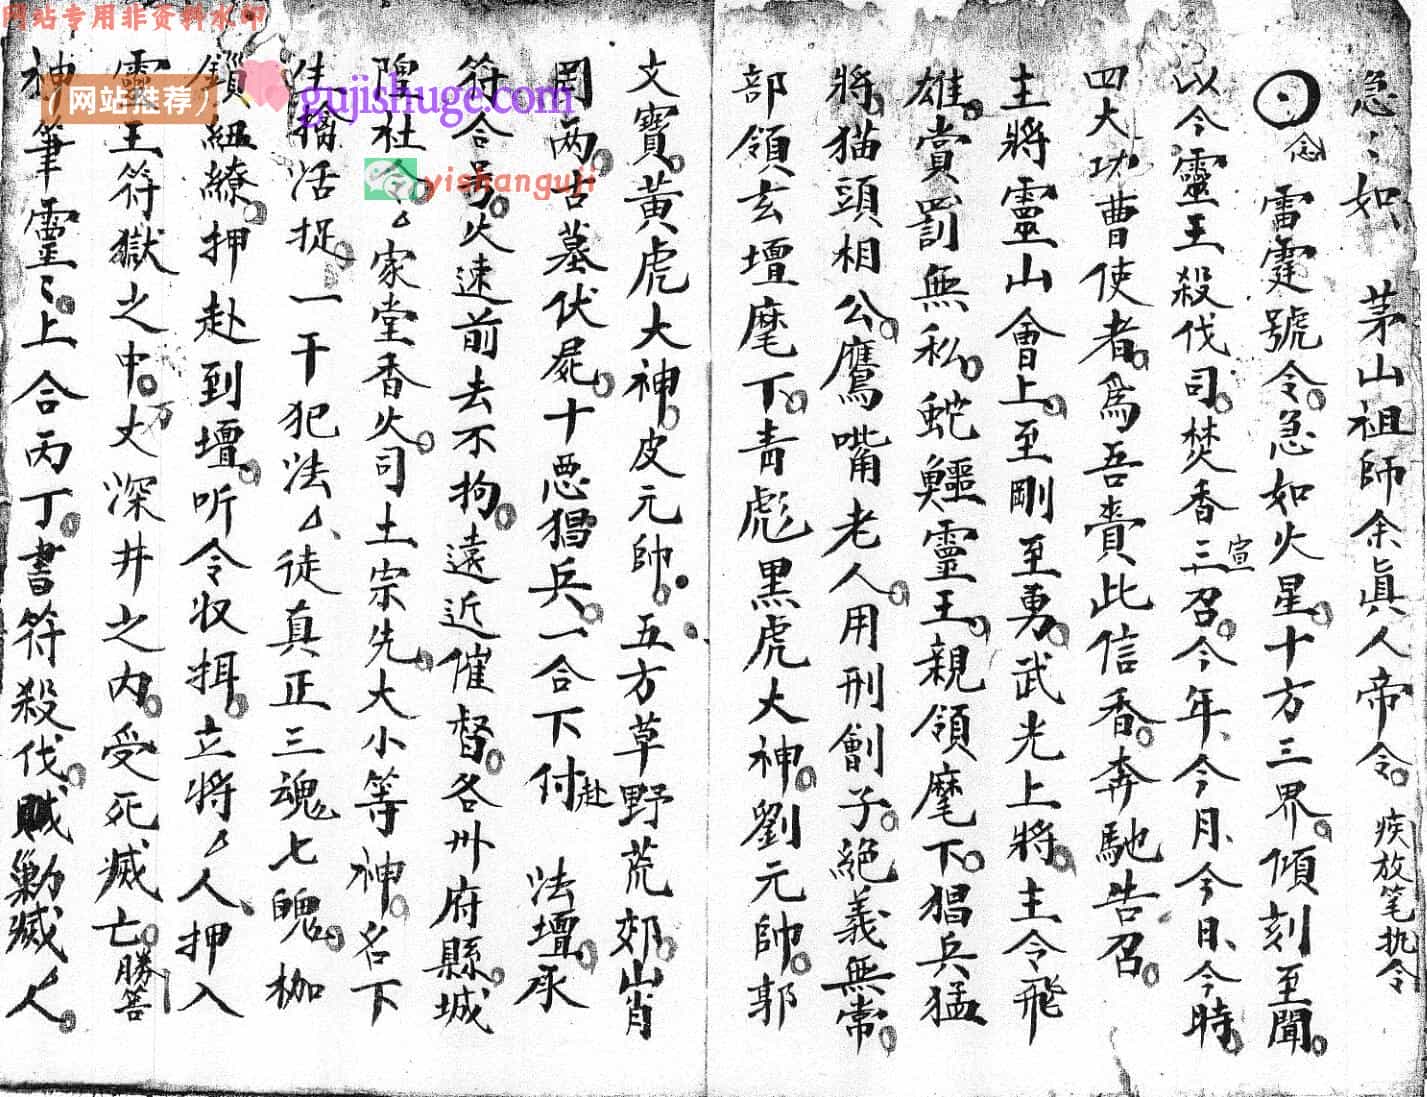 急〻如 茅山祖師余眞人帝令 疾放笔执令
念 雷霆號令急如火星十方三界傾刻至聞
以今靈王殺伐司焚香三宣召今年今月今日今時
四大功曹使者爲吾賫此信香奔馳告召
主將靈山會上至剛至勇武光上將主令飛
雄賞罰無私蛇鱷靈王親領麾下猖兵猛
將猫頭相公鷹嘴老人用刑劊子絕義無常
部領玄壇麾下青彪黑虎大神劉元帥郭
文寶黃虎大神皮元帥五方草野荒郊山肖
罔兩古墓伏屍十惡猖兵一合下付赴 法壇承
符合号火速前去不拘遠近催督各州府縣城
隍社令厶家堂香火司土宗先大小等神名下
生擒活捉一干犯法厶徒真正三魂七魄枷
鎖紐繚押赴到壇听令收押立將厶人押入
靈王符獄之中万丈深井之內受死滅亡勝善
神筆靈〻上合丙丁書符殺伐賊勦滅厶人
网站专用非资料水印
(网站推荐)
gujishuge.com
yishanguji